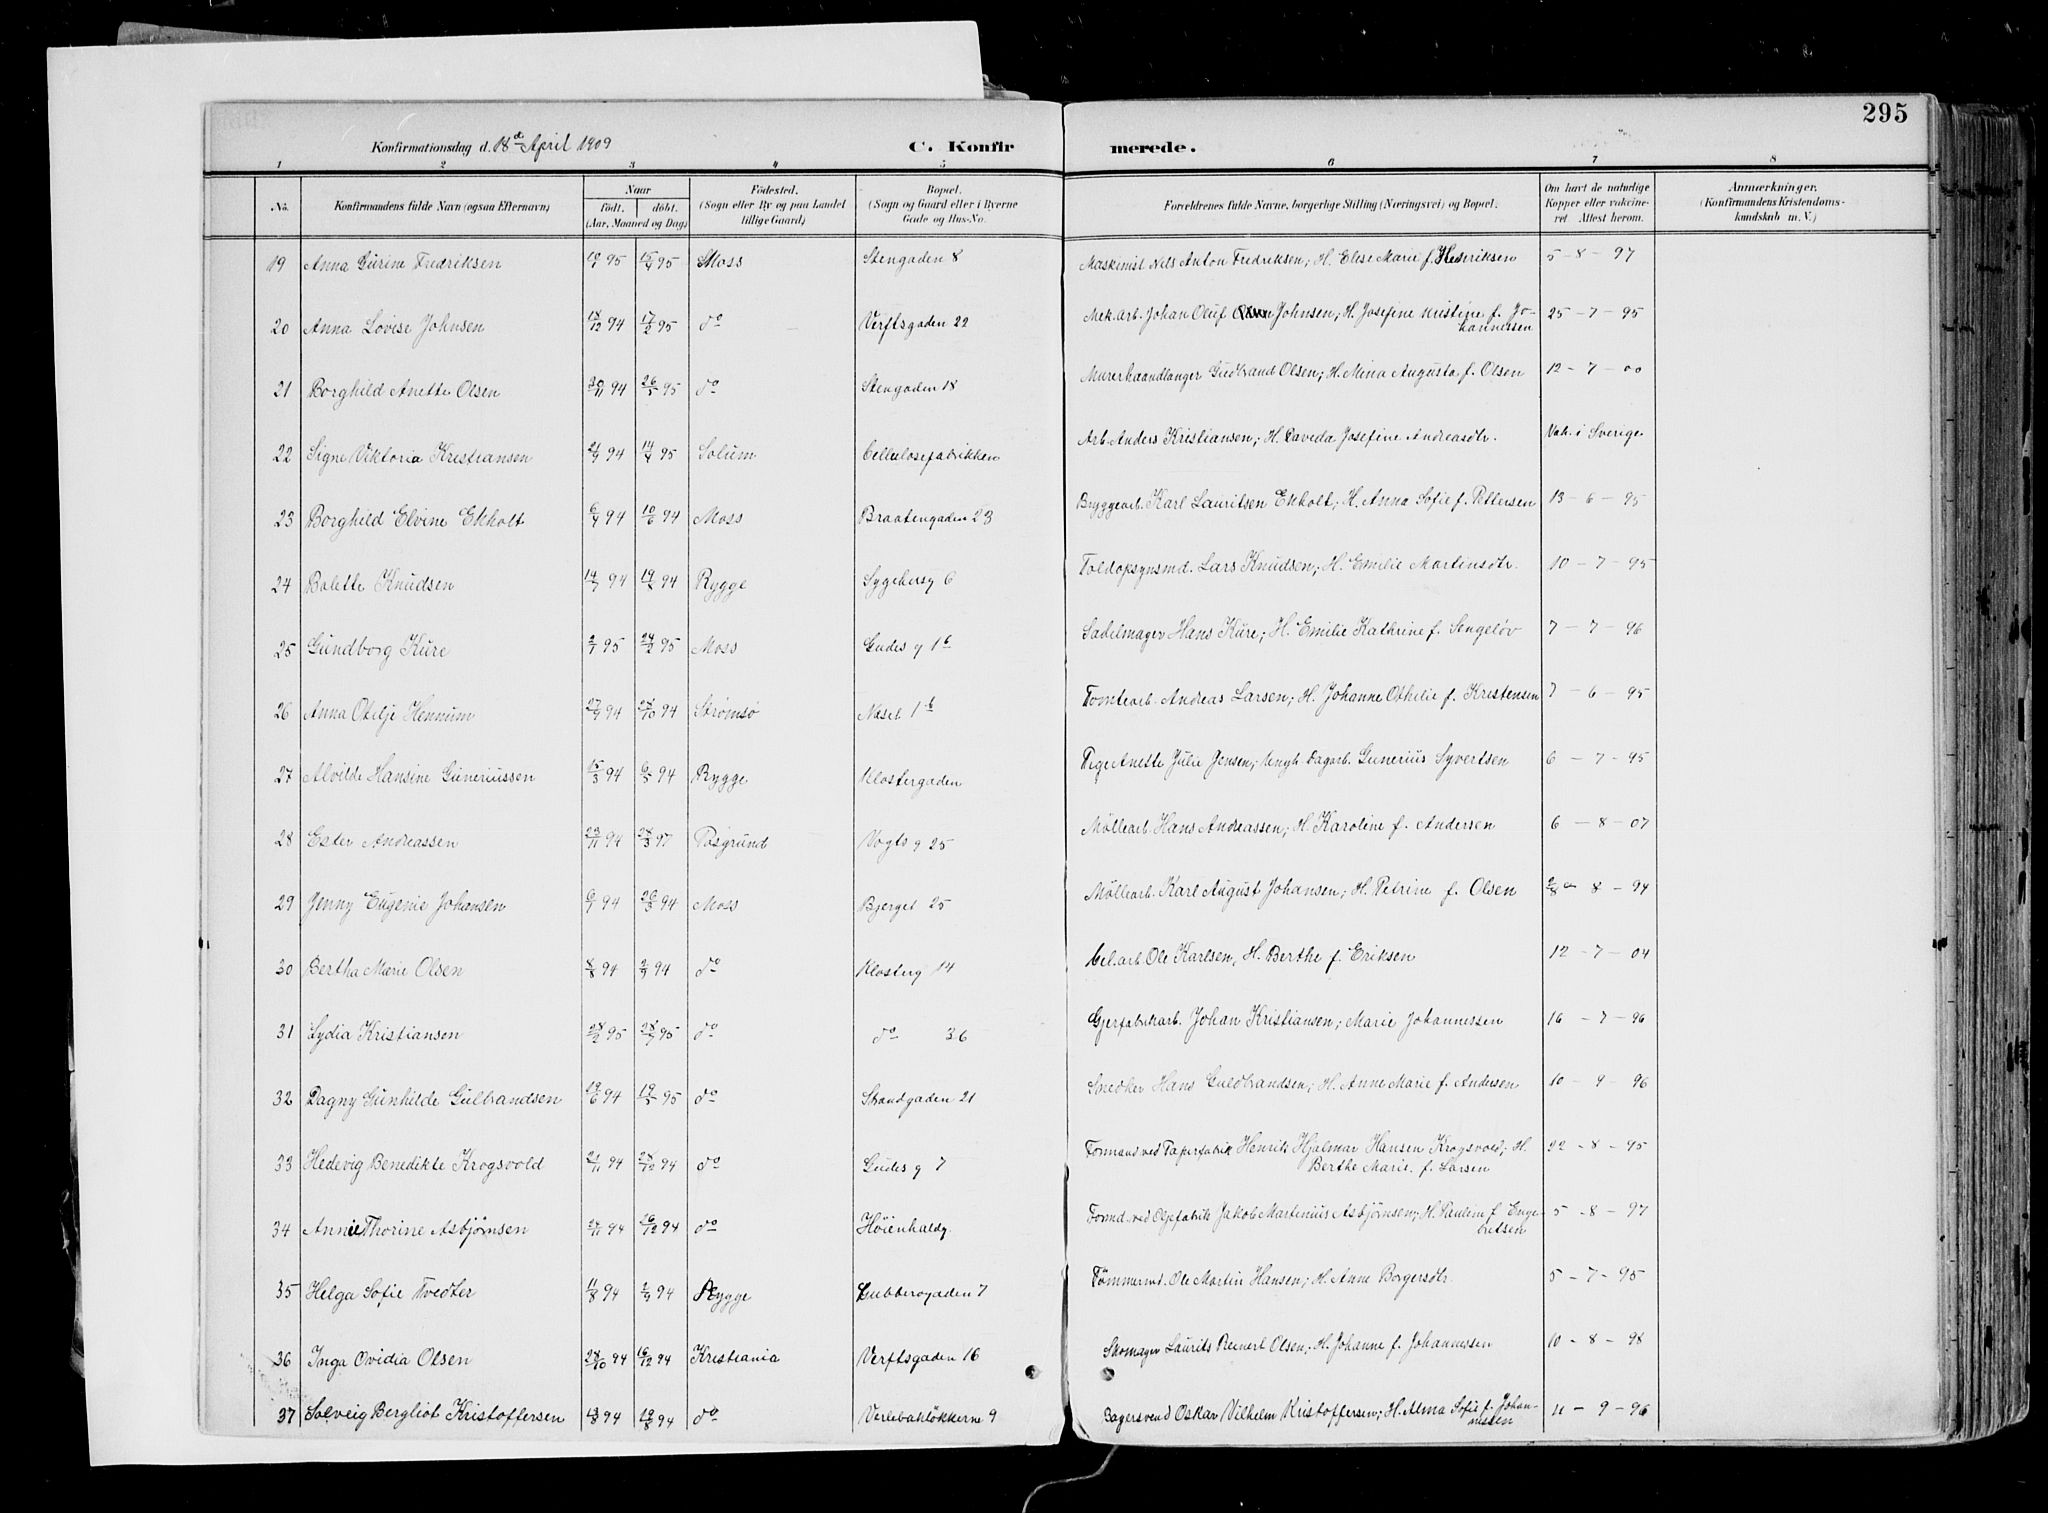 295
Konfirmationsdag d. 18de April 1909 C. Konfirmerede.
1 2 3 4 5 6 7 8
No. Konfirmandens fulde Navn (ogsaa Efternavn) Naar födt. döbt. (Aar, Maaned og Dag) Födested. (Sogn eller By og paa Landet tillige Gaard) Bopæl. (Sogn og Gaard eller i Byerne Gade og Hus-No.) Forældrenes fulde Navne, borgerlige Stilling (Næringsvei) og Bopæl. Om havt de naturlige Kopper eller vaccineret. Attest herom. Anmærkninger. (Konfirmandens Kristendomskundskab m. V.)
19 Anna Gurine Fredriksen 95 95 Moss Stengaden 8 Maskinist Nils Anton Fredriksen; H. Elise Marie f. Henriksen 5-8-97
20 Anna Lovise Johnsen 18/12 94 17/2 95 do Verftsgaden 22 Mek.arb. Johan Oluf Johnsen; H. Josefine Kristine f. Johannessen 25-7-95
21 Borghild Anette Olsen 30/11 94 26/5 95 do Stengaden 18 Murerhaandlanger Gudbrand Olsen; H. Mina Augusta f. Olsen 12-7-00
22 Signe Viktoria Kristiansen 21/9 94 14/4 95 Solum Cellulosefabrikken Arb. Anders Kristiansen; H. Daveda Josefine Andreasdtr. Vak. i Sverige
23 Borghild Elvine Ekholt 6/4 94 10/6 94 Moss Braatengaden 23 Bryggearb. Karl Lauritsen Ekholt; H. Anna Sofie f. Pettersen 13-6-95
24 Bolette Knudsen 94 94 Rygge Sygehusg 6 Toldopsynsmd. Lars Knudsen; H. Emilie Martinsdtr. 10-7-95
25 Gundborg Kure 2/1 95 24/2 95 Moss Gudes g 1b Sadelmager Hans Kure; H. Emilie Kathrine f. Sengeløv 7-7-96
26 Anna Otilje Hennum 27/9 94 28/10 94 Strømsø Neset 1b Tomtearb. Andreas Larsen; H. Johanne Othilie f. Kristensen 7-6-95
27 Alvilde Hansine Guneriussen 15/3 94 6/5 94 Rygge Klostergaden Pige Anette Julie Jensen; Ungk. Dagarb. Gunerius Syvertsen 6-7-95
28 Ester Andreassen 23/11 94 28/3 97 Posgrund Vogts g 25 Möllearb Hans Andreassen; H. Karoline f. Andersen 6-8-07
29 Jenny Eugenie Johansen 6/1 94 26/3 94 Moss Bjerget 25 Möllearb. Karl August Johansen; H. Petrine f. Olsen 8-94
30 Bertha Marie Olsen 8/8 94 2/9 94 do Klosterg 14 Cel.arb Ole Karlsen, H. Berthe f. Eriksen 12-7-04
31 Lydia Kristiansen 28/2 95 28/7 95 do do 36 Gjærfabrikarb. Johan Kristiansen; Marie Johannessen 16-7-96
32 Dagny Gunhilde Gulbrandsen 19/6 94 19/5 95 do Strandgaden 21 Snedker Hans Guldbrandsen; H. Anne Marie f. Andersen 10-9-96
33 Hedevig Benedikte Krogsvold 21/11 94 28/12 94 do Gudes g 7 Formand ved Papirfabrik Henrik Hjalmar Hansen Krogsvold; H. Berthe Marie f. Larsen 22-8-95
34 Annie Thorine Asbjørnsen 94 26/12 94 do Höienhaldg. Formd. ved Oljefabrik Jakob Martinius Asbjørnsen; H. Pauline f. Engebretsen 5-8-97
35 Helga Sofie Tvedter 11/8 94 2/9 94 Rygge Gubberogaden 7 Tömmermd. Ole Martin Hansen; H. Anne Borgersdtr. 5-7-95
36 Inga Ovidia Olsen 28/10 94 16/12 94 Kristiania Verftsgaden 16 Skomager Laurits Reinert Olsen; H. Johanne f. Johannessen 10-8-98
37 Solveig Bergliot Kristoffersen 94 19/8 94 do Verlebakløkkerne 9 Bagersvend Oskar Vilhelm Kristoffersen; H. Alma Sofie f. Johannessen 11-9-96